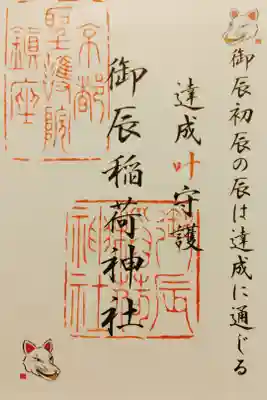 御辰初辰の辰は達成に通じる
達成叶守護
御辰稲荷神社
京都
聖護院
鎮座
御辰
稲荷
神社